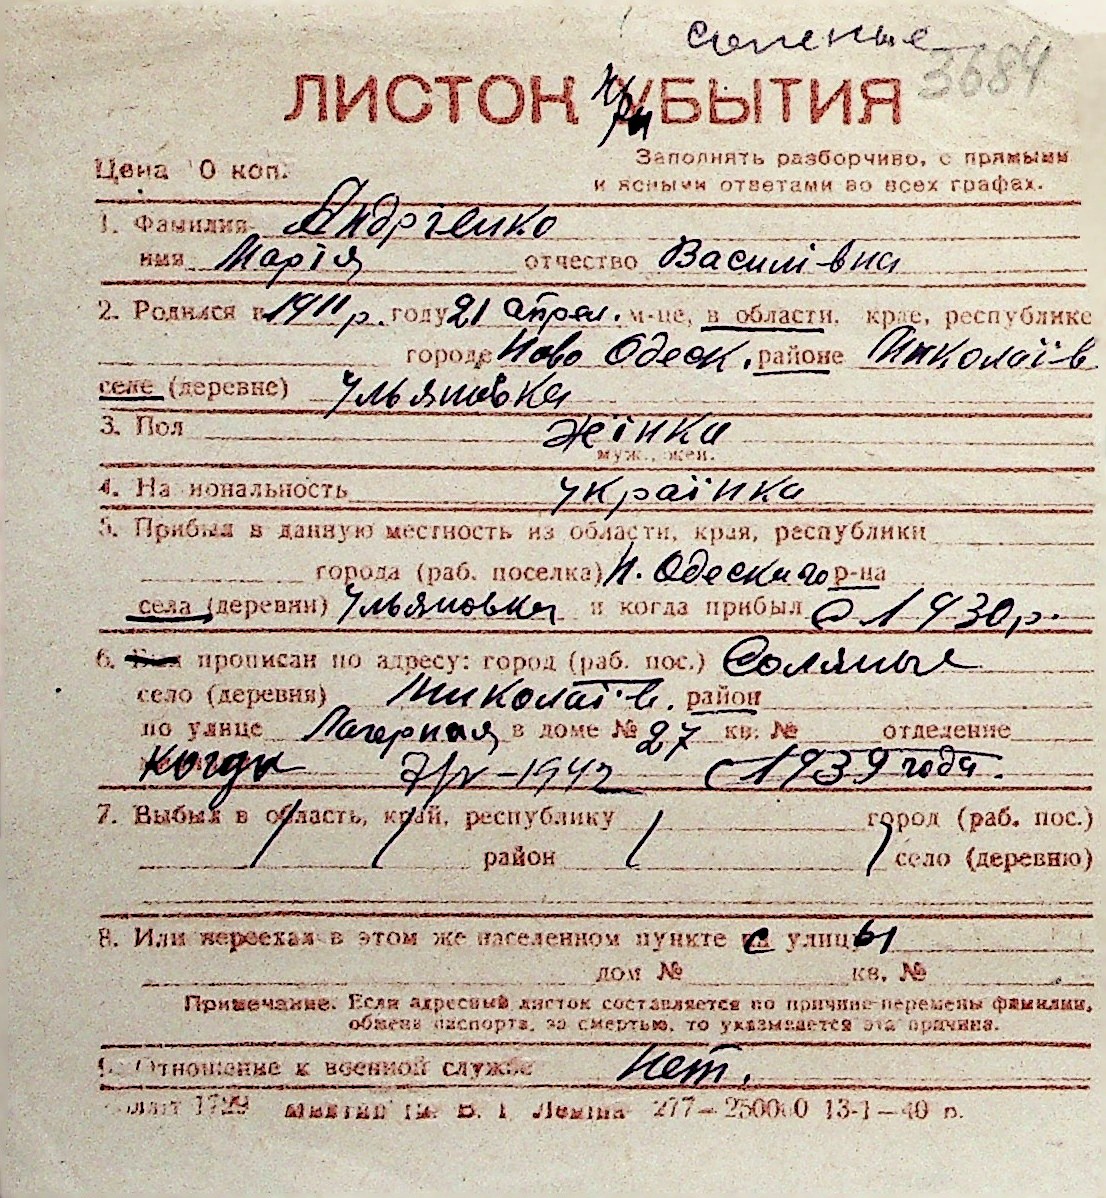 3684
ЛИСТОК При УБЫТИЯ
Цена 0 коп.
Заполнять разборчиво, с прямыми
и ясными ответами во всех графах.
1. Фамилия Андрієнко
имя Марія отчество Василівна
2. Родился в 1911 р. году 21 апрел. м-це, в области, крае, республике
городе Ново Одеск. районе Николаїв
селе (деревне) Ульяновка
3. Пол жінка
муж., жен.
4. На иональность українка
5. Прибыл в данную местность из области, края, республики
города (раб. поселка) Н. Одескаго р-на
села (деревни) Ульяновка и когда прибыл с 1930 р.
6. прописан по адресу: город (раб. пос.) Соляные
село (деревня) Николаїв. район
по улице Лагерная в доме № 27 кв. № отделение
когда 1942 с 1939 года.
7. Выбыл в область, край, республику город (раб. пос.)
район село (деревню)
8. Или переехал в этом же населенном пункте с улицы
дом № кв. №
Примечание. Если адресный листок составляется по причине перемены фамилии,
обмена паспорта, за смертью, то указывается эта причина.
9. Отношение к военной службе Нет.
1729 им. В. І Леніна 277—250000 13-1—40 р.